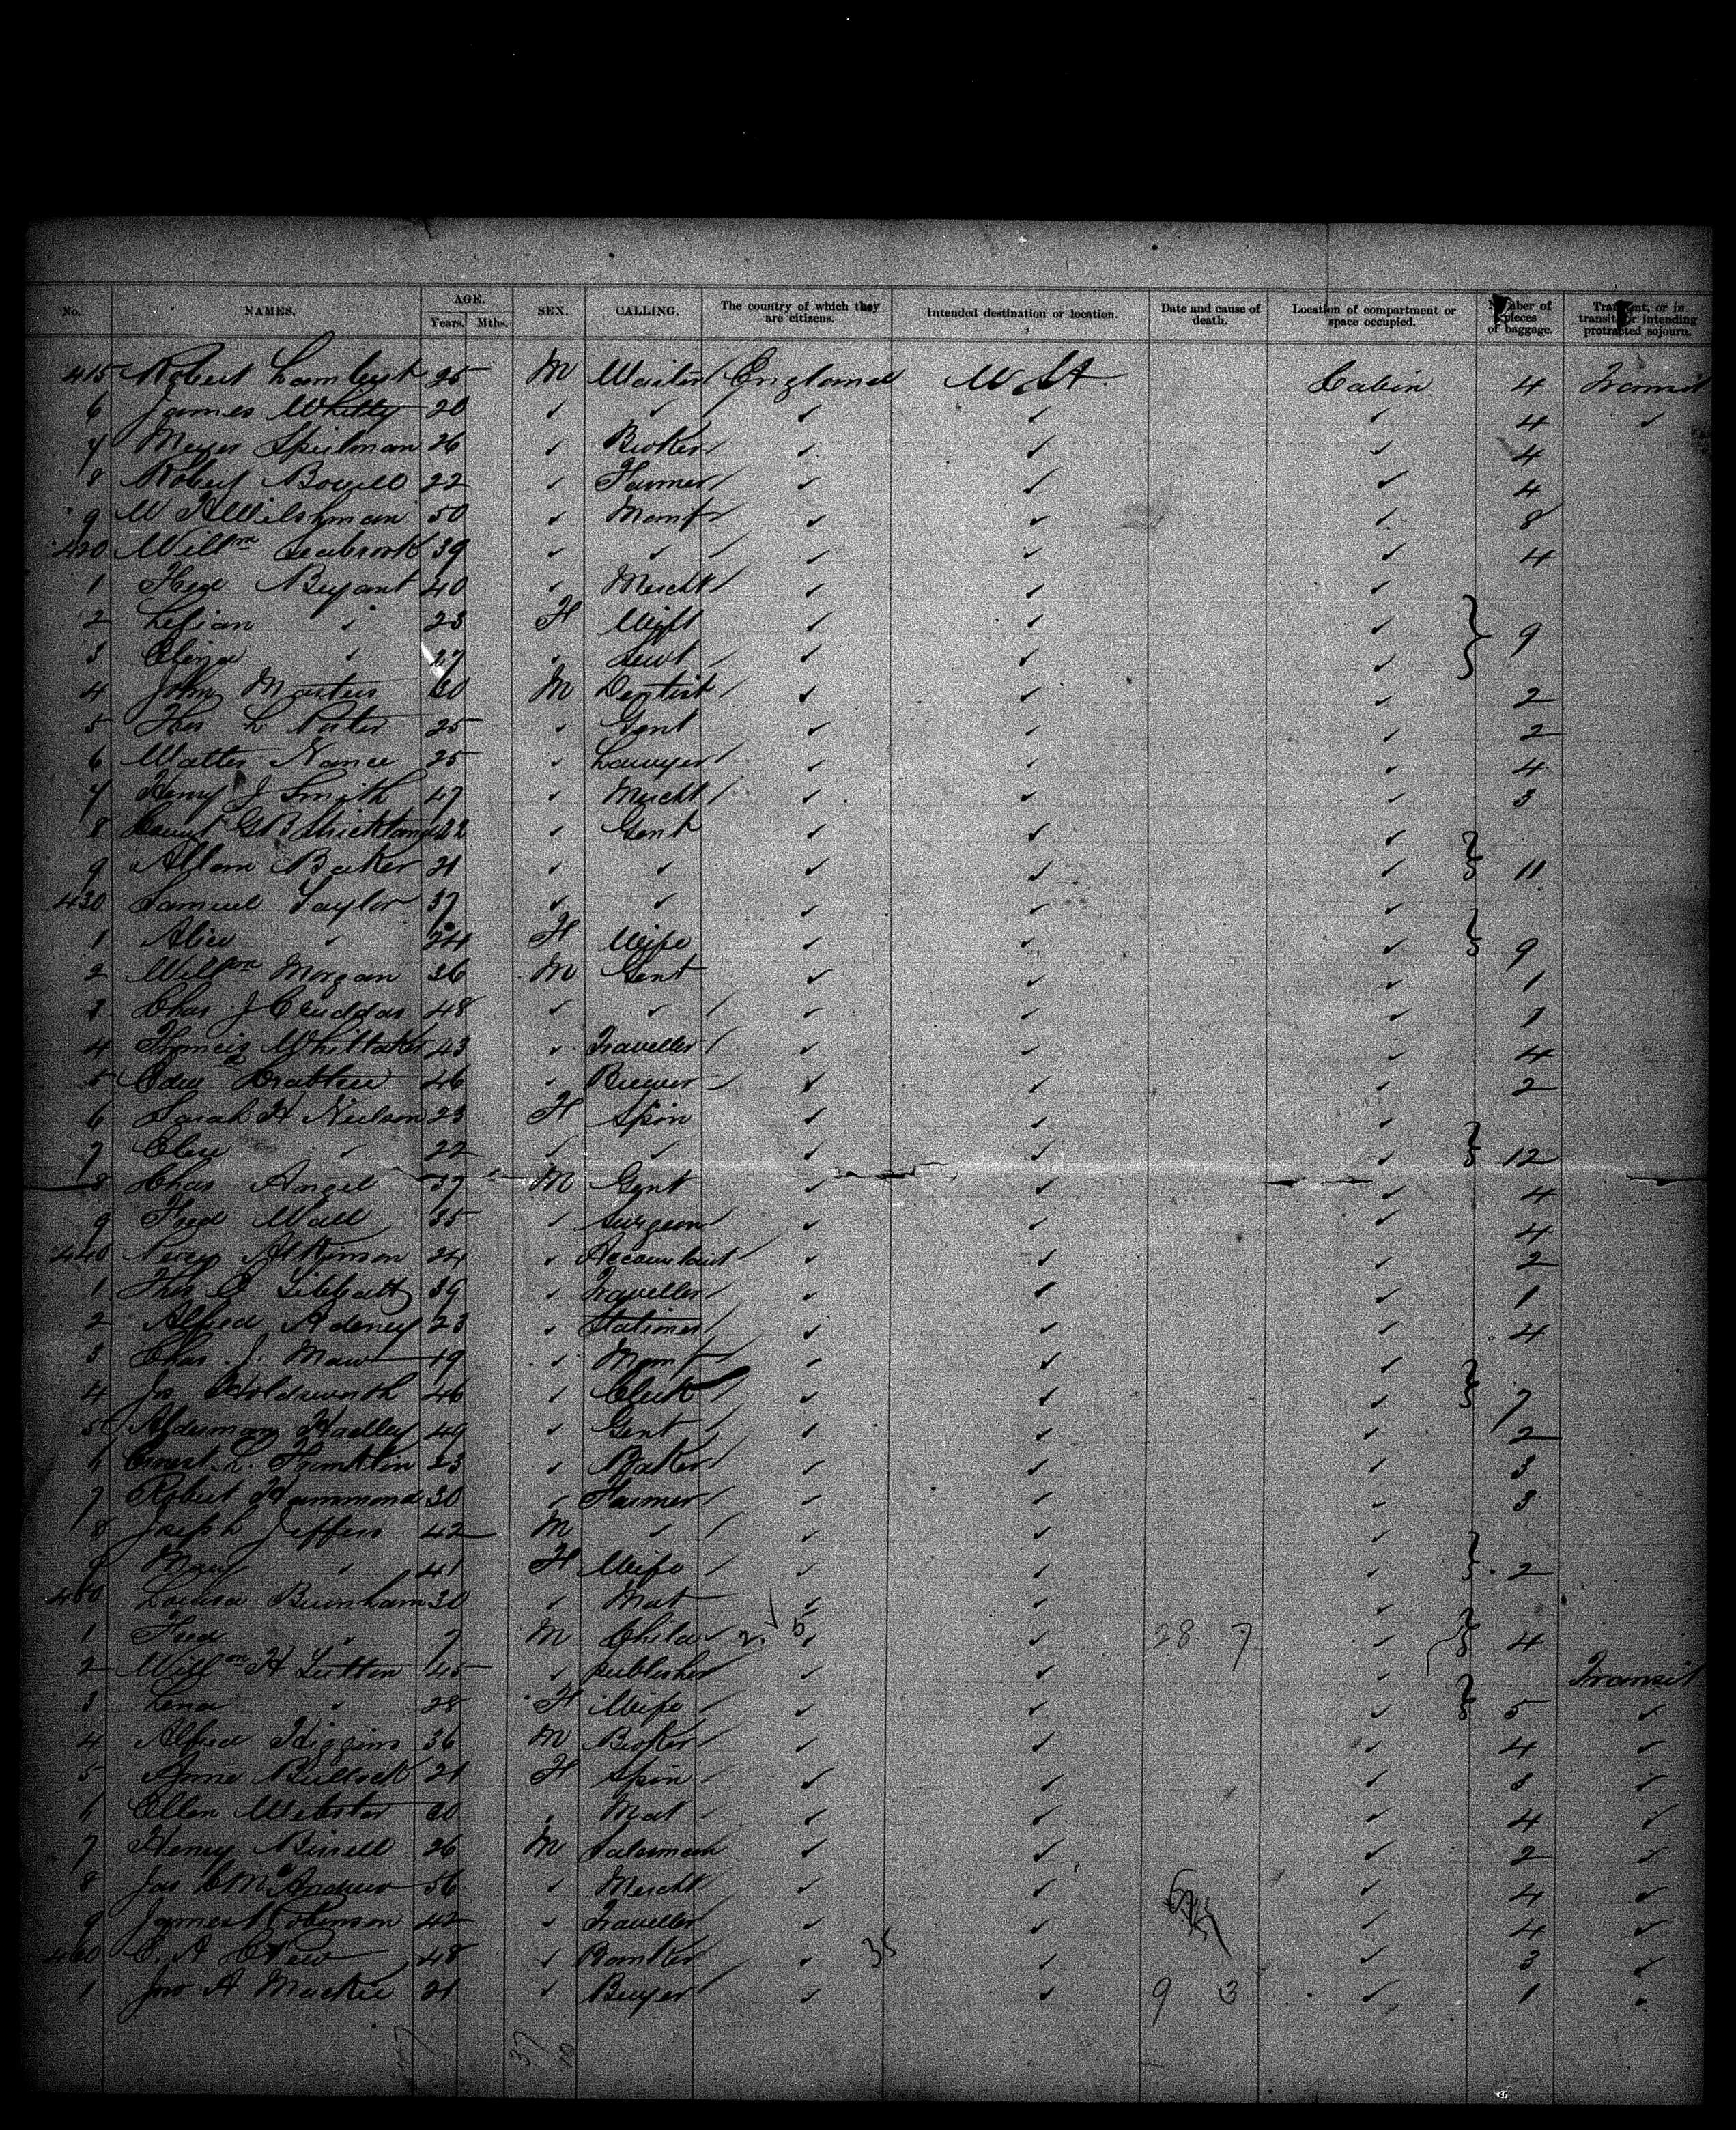 No. NAMES. AGE. Years. Mths. SEX. CALLING. The country of which they are citizens. Intended destination or location. Date and cause of death. Location of compartment or space occupied. Number of pieces of baggage. Transient, or in transit or intending protracted sojourn.
415 Robert Lambert 25 M Waiter England U St. Cabin 4 Transit
6 James Whitty 20 ✓ ✓ ✓ ✓ ✓ 4 ✓
7 Meyer Spielman 26 ✓ Broker ✓ ✓ ✓ 4
8 Robert Bowell 22 ✓ Farmer ✓ ✓ ✓ 4
9 W H Welshman 50 ✓ Manf ✓ ✓ ✓ 8
420 Willm Seabrook 39 ✓ ✓ ✓ ✓ ✓ 4
1 Fred Bryant 40 ✓ Mercht ✓ ✓ ✓
2 Lilian ✓ 23 F Wife ✓ ✓ ✓ 9
3 Eliza ✓ 27 ✓ Servt ✓ ✓ ✓
4 John Masters 30 M Dentist ✓ ✓ ✓ 2
5 Thos L Porter 25 ✓ Gent ✓ ✓ ✓ 2
6 Walter Nance 25 ✓ Lawyer ✓ ✓ ✓ 4
7 Henry J Smith 47 ✓ Mercht ✓ ✓ ✓ 3
8 Count G B Strickland 22 ✓ Gent ✓ ✓ ✓
9 Allan Baker 21 ✓ ✓ ✓ ✓ ✓ 11
430 Samuel Taylor 37 ✓ ✓ ✓ ✓ ✓
1 Alice ✓ 24 F Wife ✓ ✓ ✓ 9
2 Willm Morgan 36 M Gent ✓ ✓ ✓ 1
3 Chas J Cruddas 48 ✓ ✓ ✓ ✓ ✓ 1
4 Francis Whittaker 43 ✓ Traveller ✓ ✓ ✓ 4
5 Edwd Crabtree 46 ✓ Brewer ✓ ✓ ✓ 2
6 Sarah H Neilson 23 F Spin ✓ ✓ ✓
7 Elise ✓ 22 ✓ ✓ ✓ ✓ ✓ 12
8 Chas Angel 37 M Gent ✓ ✓ ✓ 4
9 Fred Wall 35 ✓ Surgeon ✓ ✓ ✓ 4
440 Percy Atkinson 24 ✓ Accountant ✓ ✓ ✓ 2
1 Thos O Tibbatts 39 ✓ Traveller ✓ ✓ ✓ 1
2 Alfred Adeney 23 ✓ Stationer ✓ ✓ ✓ 4
3 Chas. J. Maw 19 ✓ Manf ✓ ✓ ✓
4 Jos Holdsworth 46 ✓ Clerk ✓ ✓ ✓ 7
5 Alderman Hadley 49 ✓ Gent ✓ ✓ ✓ 2
6 Ernest L. Franklin 23 ✓ Banker ✓ ✓ ✓ 3
7 Robert Hammond 30 ✓ Farmer ✓ ✓ ✓ 3
8 Joseph Jeffers 42 M ✓ ✓ ✓ ✓
9 Mary ✓ 41 F Wife ✓ ✓ ✓ 2
450 Louisa Burnham 30 ✓ Mat ✓ ✓ ✓
1 Fred ✓ 7 M Child 2. 5 ✓ ✓ 28 7 ✓ 4
2 Willm H Lutton 45 ✓ Publisher ✓ ✓ ✓ Transit
3 Lena ✓ 28 F Wife ✓ ✓ ✓ 5 ✓
4 Alfred Higgins 36 M Broker ✓ ✓ ✓ 4 ✓
5 Annie Bullock 21 F Spin ✓ ✓ ✓ 3 ✓
6 Ellen Webster 30 ✓ Mat ✓ ✓ ✓ 4 ✓
7 Henry Birrell 26 M Salesman ✓ ✓ ✓ 2 ✓
8 Jas C McAndrew 56 ✓ Mercht ✓ ✓ ✓ 4 ✓
9 James Robinson 42 ✓ Traveller ✓ ✓ ✓ 4 ✓
460 C. A 48 ✓ Banker ✓ 35 ✓ ✓ 3 ✓
1 Jno A Mackie 21 ✓ Buyer ✓ ✓ 9 3 ✓ 1 ✓
37 10